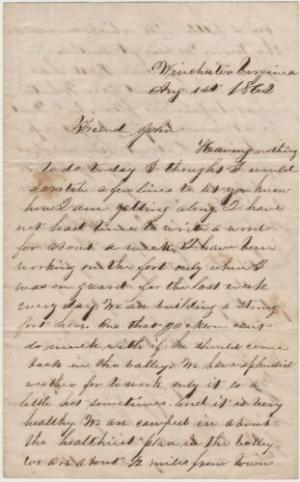 Winchester Virginia
Aug 1st 1862
Friend John
Having nothing
to do today I thought I would
scratch a few lines to let you know
how I am getting along I have
not head time to write a word
for about a week. I have been
working on the fort only when I
was on guard for the last week
every day. We are building a strong
fort here. One that Jackson cant
do much with if he should come
back in the valley. We have splendid
weather for to work only it is a
little hot sometimes. and it is very
healthy. We are camped in about
the healthiest place in the valley
we are about 2 miles from town